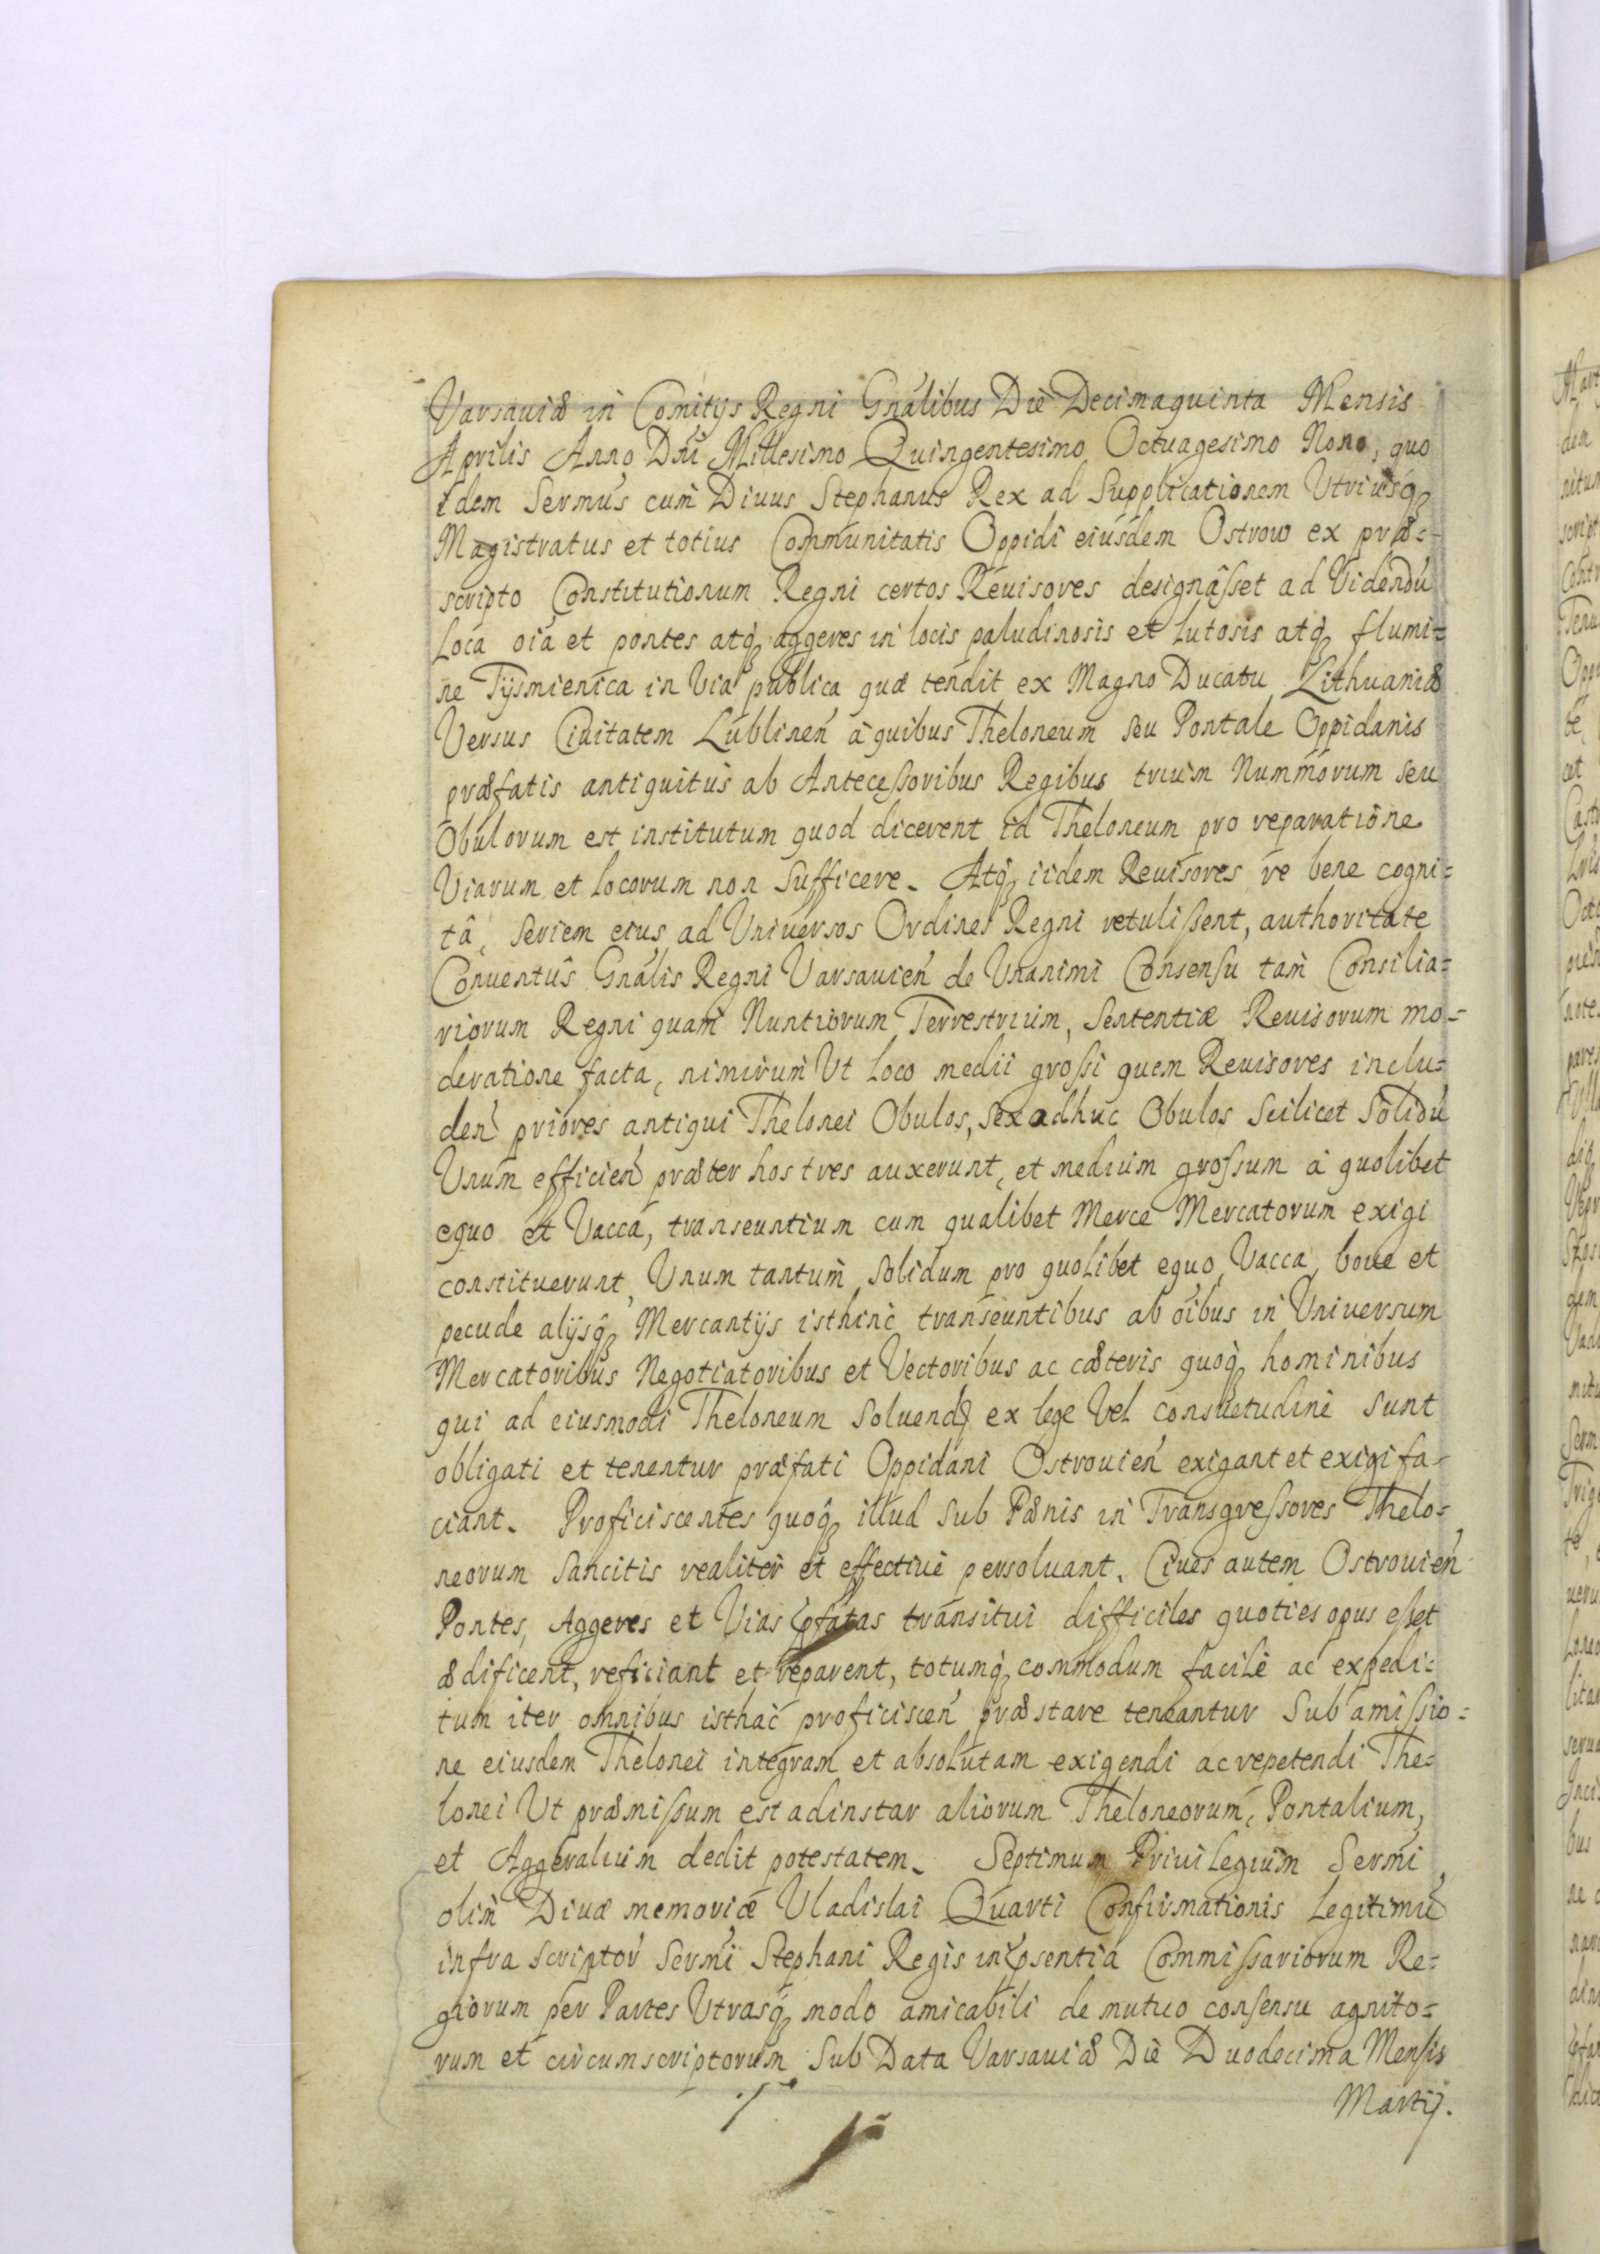 Varsaviæ in Comitijs Regni Gnálibus Diè Decimaquinta Mensis
Aprilis Anno Dńi Millesimo Quingentesimo Octuagesimo Nono, quo
idem Sermús cum Divus Stephanus Rex ad Supplicationem Utriusq́
Magistratus et totius Communitatis Oppidi eiusdem Ostrow ex præ=
scripto Constitutionum Regni certos Revisores designâsset ad Videndú
Loca oía et pontes atq́ aggeres in locis paludinosis et lutosis atq́ flumi=
ne Tysmienica in Via publica quæ tendit ex Magno Ducatu Lithuaniæ
Versus Civitatem Lublineń à quibus Theloneum seu Pontale Oppidanis
præfatis antiquitus ab Antecessoribus Regibus trium Nummorum seu
Obulorum est institutum quod dicerent id Theloneum pro reparatione
Viarum et locorum non Sufficere. Atq́ iidem Revisores re bene cogni=
tâ, Seriem eius ad Universos Ordines Regni retulissent, authoritate
Conventûs Gnális Regni Varsavień de Unanimi Consensu tam Consilia=
riorum Regni quam Nuntiorum Terrestrium, Sententiæ Revisorum mo=
deratione facta, nimirum Ut loco medii grossi quem Revisores inclu=
deń priores antiqui Thelonei Obulos, Sex adhuc Obulos Scilicet Solidú
Unum efficień præter hos tres auxerunt, et medium grossum à quolibet
equo et Vacca, transeuntium cum qualibet Merce Mercatorum exigi
constituerunt, Unum tantum Solidum pro quolibet equo, Vacca, bove et
pecude alijsq́ Mercantijs isthinc transeuntibus ab oíbus in Universum
Mercatoribus Negotiatoribus et Vectoribus ac cæteris quoq́ hominibus
qui ad eiusmodi Theloneum Solvendú ex lege Vel consuetudine Sunt
obligati et tenentur præfati Oppidani Ostrovień exigant et exigi fa=
ciant. Proficiscentes quoq́ illud Sub Pænis in Transgressores Thelo=
neorum Sancitis realiter et effective persolvant. Cives autem Ostrovień
Pontes, Aggeres et Vias pfatas transitui difficiles quoties opus esset
ædificent, reficiant et reparent, totumq́ commodum facilè ac expedi=
tum iter omnibus isthac proficisceń præstare teneantur Sub amissio=
ne eiusdem Thelonei integram et absolutam exigendi ac repetendi The=
lonei Ut præmissum est adinstar aliorum Theloneorum, Pontalium,
et Aggeralium dedit potestatem. Septimum Privilegium Sermi
olim Divæ memoriæ Vladislai Quarti Confirmationis Legitimæ
infra scriptoŕ Sermi Stephani Regis in psentia Commissariorum Re=
giorum per Partes Utrasq́ modo amicabili de mutuo consensu agnito=
rum et circumscriptorum Sub Data Varsaviæ Diè Duodecima Mensis
Martij.